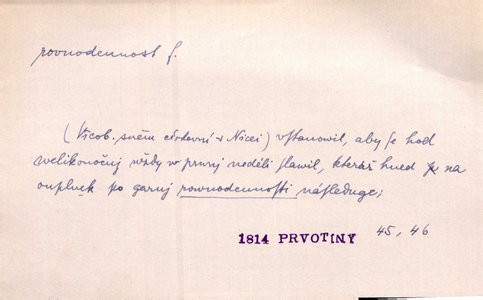 rovnodennost f.
(Všeob. sněm církevní v Nicei) vstanowil, aby se hod
welikonočnj wždy w prwnj neděli slawil, kteráž hned po na
auplněk po garnj rownodennosti následuge;
1814 PRVOTINY 45, 46